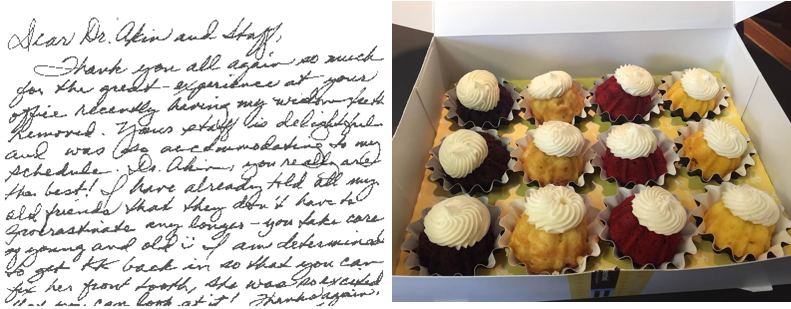 Dear Dr. Akin and Staff,
Thank you all again so much
for the great experience at your
office recently having my wisdom teeth
removed. Your staff is delightful
and was so accommodating to my
schedule. Dr. Akin, you really are
the best! I have already told all my
old friends that they don't have to
procrastinate any longer - you take care
of young and old :) I am determined
to get KK back in so that you can
fix her front tooth, she was so excited
that you can look at it! Thanks again,